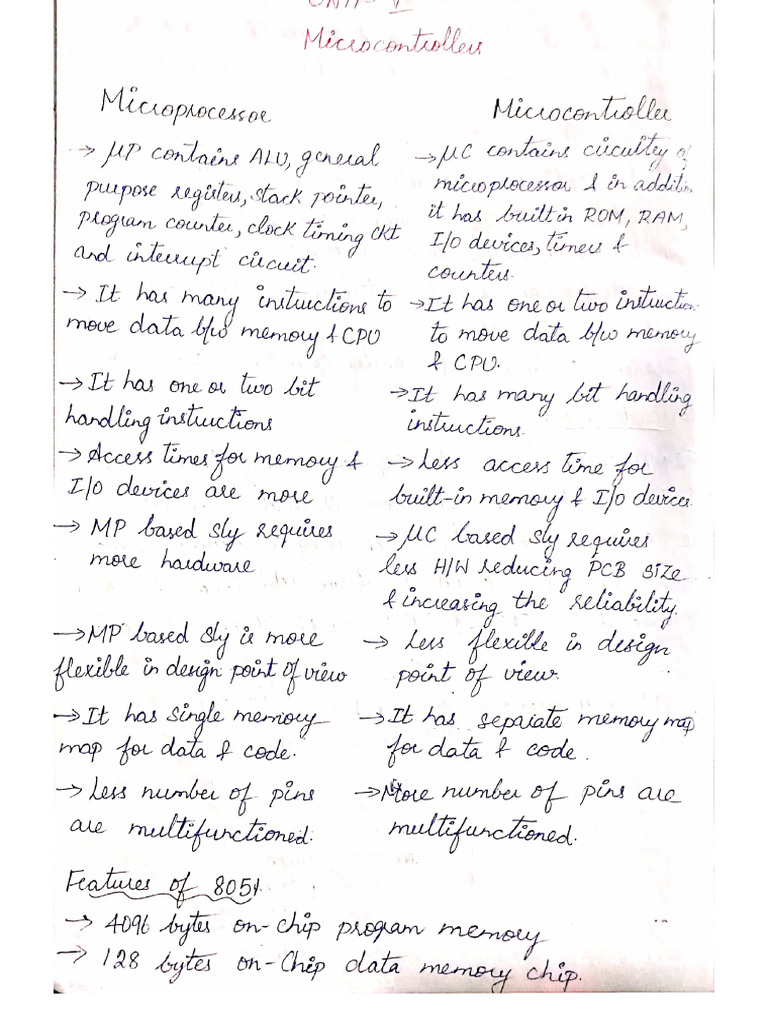 UNIT- V
Microcontrollers
Microprocessor
→ μP contains ALU, general
purpose registers, stack pointer,
program counter, clock timing ckt
and interrupt circuit.
→ It has many instructions to
move data b/w memory & CPU
→ It has one or two bit
handling instructions
→ Access times for memory &
I/O devices are more
→ MP based sly requires
more hardware
→ MP based sly is more
flexible in design point of view
→ It has single memory
map for data & code.
→ Less number of pins
are multifunctioned.
Microcontroller
→ μC contains circuitry of
microprocessor & in addition
it has built in ROM, RAM,
I/O devices, timers &
counters.
→ It has one or two instruction
to move data b/w memory
& CPU.
→ It has many bit handling
instructions.
→ Less access time for
built-in memory & I/O devices.
→ μC based sly requires
less H/W reducing PCB size
& increasing the reliability.
→ Less flexible in design
point of view.
→ It has separate memory map
for data & code.
→ More number of pins are
multifunctioned.
Features of 8051
→ 4096 bytes on-chip program memory
→ 128 bytes on-Chip data memory chip.